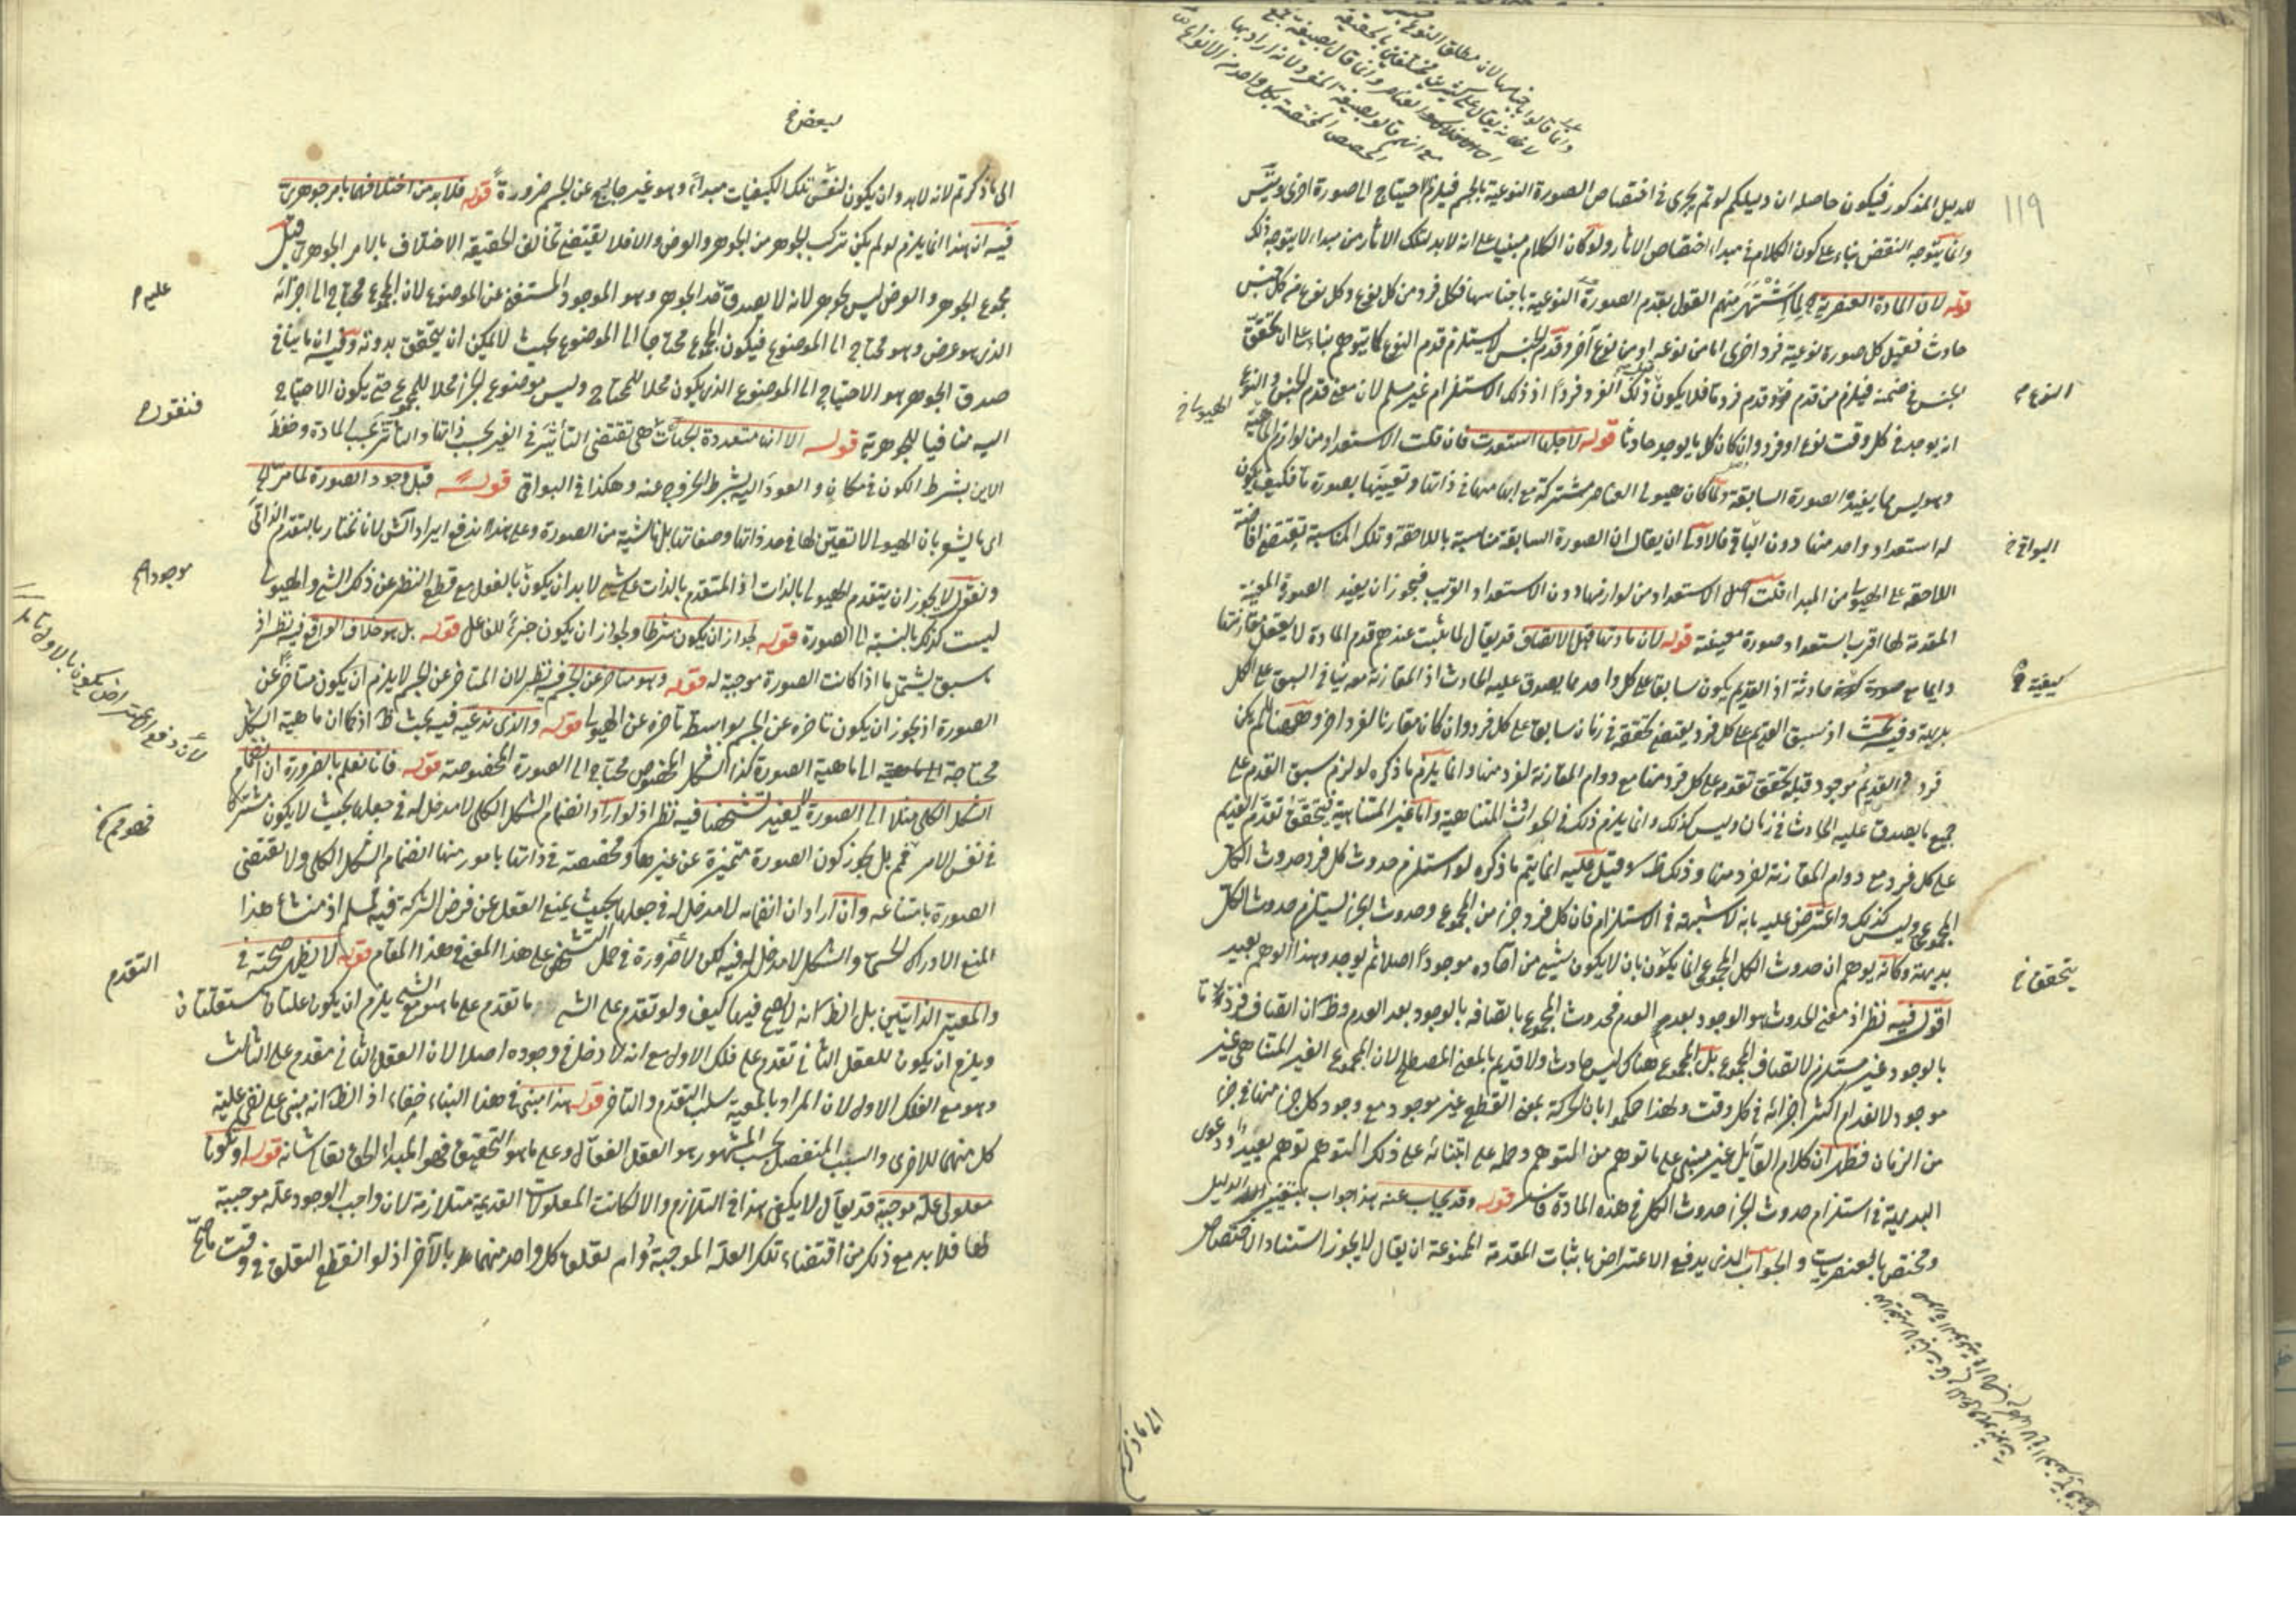 119
للدليل المذكور فيكون حاصله ان دليلكم لو تم يجرى فى اختصاص الصورة النوعية بالجسم فيلزم الاحتياج الى صورة اخرى ويتس
وانما يتوجه النقض بناء على كون الكلام فى مبداء اختصاص الاثار ولو كان الكلام مبنيا على انه لابد لتلك الاثار من مبداء لا يتوجه ذلك
قوله لان المادة العنصرية لما اشتهر منهم القول بقدم الصورة النوعية باجناسها فكل فرد من كل نوع وكل نوع من كل جنس
حادث فقبل كل صورة نوعية فرد اخرى اما من نوعه او من نوع آخر وقدم الجنس لا يستلزم قدم النوع كما يتوهم بناء على ان تحقق
الجنس فى ضمنه فيلزم من قدمه قدم فرد ما فلا يكون ذلك الفرد فردا اذ ذلك الاستلزام غير مسلم لان معنى قدم الجنس والنوع
انه يوجد فى كل وقت نوع او فرد وان كان كل ما يوجد حادثا قوله لاجلها استعدت فان قلت الاستعداد من لوازم الماهية
وهو ليس مما يفيده الصورة السابقة ولما كان هيولى العناصر مشتركة مع ابهامها فى ذاتها وتعينها بصورة ما فكيف يكون
له استعداد واحد منها دون الباقى فالاولى ان يقال ان الصورة السابقة مناسبة باللاحقة وتلك المناسبة تقتضى افاضة
اللاحقة على الهيولى من المبداء قلت اصل الاستعداد من لوازمها دون الاستعداد القريب فيجوز ان يفيد الصورة المعينة
المقدمة لها اقرب باستعداد صورة معينة قوله لان مادتها قبل الاتصاف قد يقال لما يثبت عندهم قدم المادة لا يعقل مقارنتها
دايما مع صورة حادثة اذ القديم يكون سابقا على كل واحد مما يصدق عليه الحادث اذ المقارنة معه ينافى السبق على الكل
بديهة وفيه بحث اذ سبق القديم على كل فرد يقتضى تحققه فى زمان سابق على كل فرد وان كان مقارنا لفرد اخر وههنا لم يكن
فرد القديم موجود قبله تحقق تقدمه على كل فرد منها مع دوام المقارنة لفرد منها وانما يلزم ما ذكره لو لزم سبق القدم على
جميع ما يصدق عليه الحادث فى زمان وليس كذلك وانما يلزم ذلك فى الحوادث المتناهية واما غير المتناهية فيتحقق تقدم القديم
على كل فرد مع دوام المقارنة لفرد منها وذلك ظ وقيل عليه انما يتم ما ذكره لو استلزم حدوث كل فرد حدوث الكل
المجموعى وليس كذلك واعترض عليه بانه لا شبهة فى الاستلزام فان كل فرد جزء من المجموع وحدوث الجزء يستلزم حدوث الكل
بديهة وكانه يوهم ان حدوث الكل المجموعى انما يكون بان لا يكون شيئ من آحاده موجودا اصلا ثم يوجد وهذا الوهم بعيد
اقول فيه نظر اذ معنى الحدوث هو الوجود بعد العدم فحدوث المجموع باتصافه بالوجود بعد العدم وظ ان اتصاف فرد ما
بالوجود غير مستلزم لاتصاف المجموع بل المجموع هناك ليس حادث ولا قديم بالمعنى المصطلح لان المجموع الغير المتناهى غير
موجود لانعدام اكثر اجزائه فى كل وقت ولهذا حكموا بان الحركة بمعنى القطع غير موجود مع وجود كل جزء منها فى جزء
من الزمان فظهر ان كلام القائل غير مبنى على ما توهم من المتوهم وحمله على ابتنائه على ذلك المتوهم توهم بعيد ودعوى
البديهة فى استلزام حدوث الجزء حدوث الكل فى هذه المادة قوله وقد يجاب عنه هذا جواب بتغيير الدليل
ومختص بالعنصريات والجواب الذى يدفع الاعتراض باثبات المقدمة الممنوعة ان يقال لا يجوز استناد الاختصاص
النوع
الهيولى
البواقى
كيفية
يتحقق
لبعض
الى ما ذكرتم لانه لابد وان يكون لنفس تلك الكيفيات مبداء وهو غير خارج عن الجسم ضرورة قوله فلابد من اختلافهما بامر جوهرى
فيه ان هذا انما يلزم لو لم يكن تركب الجوهر من الجوهر والعرض والا فلا يقتضى تخالف الحقيقة الاختلاف بالامر الجوهرى قيل
مجموع الجوهر والعرض ليس بجوهر لانه لا يصدق حد الجوهر وهو الموجود المستغنى عن الموضوع لان المجموع محتاج الى اجزائه
الذى هو عرض وهو محتاج الى الموضوع فيكون المجموع محتاجا الى الموضوع بحيث لا يمكن ان يتحقق بدونه وفيه ان ما ينافى
صدق الجوهر هو الاحتياج الى الموضوع الذى يكون محلا للمحتاج وليس موضوع الجزء محلا للمجموع حتى يكون الاحتياج
اليه منافيا للجوهرية قوله الا انها متعددة الجهات هى تقتضى التأثير فى الغير بحسب ذاتها والتأثر بحسب المادة وحفظ
الاين بشرط الكون فى مكان والعود اليه بشرط الخروج عنه وهكذا فى البواقى قوله قبل وجود الصورة لما مر
اى ما يشعر بان الهيولى لا تعين لها فى حد ذاتها وصفاتها بل ناشئة من الصورة وعلى هذا يندفع ايراد الش لانا نختار بالتقدم الذاتى
ونقول لا يجوز ان يتقدم الهيولى بالذات اذ المتقدم بالذات على شئ لابد ان يكون بالفعل مع قطع النظر عن ذلك الشئ والهيولى
ليست كذلك بالنسبة الى الصورة قوله لجواز ان يكون شرطا ولجواز ان يكون جزء للفاعل قوله بل هو خلاف الواقع فيه نظر اذ
ما سبق يشتمل ما اذا كانت الصورة موجبة له قوله وهو متاخر عن الجسم فيه نظر لان المتاخر عن الجسم لا يلزم ان يكون متاخرا عن
الصورة اذ يجوز ان يكون تاخره عن الجسم بواسطة تاخره عن الهيولى قوله والذى ندعيه فيه بحث ظ اذ كما ان ماهية الشكل
محتاجة الى ماهية الصورة كذا الشكل المخصوص محتاج الى الصورة المخصوصة قوله فانا نعلم بالضرورة ان انضمام
الشكل الكلى مثلا الى الصورة لا يفيد تشخصها فيه نظر اذ لو اراد انضمام الشكل الكلى لا مدخل له فى جعلها بحيث لا يكون مشتركا
فى نفس الامر فمم بل يجوز كون الصورة متميزة عن غيرها ومخصصة فى ذاتها بامور منها انضمام الشكل الكلى ولا يقتضى
الصورة بامتناعه وان اراد ان انضمامه لا مدخل له فى جعلها بحيث يمنع العقل عن فرض الشركة فيه فمسلم اذ منشاء هذا
المنع الادراك الحسى والشكل لا مدخل له فيه لكن لا ضرورة فى حمل التشخص على هذا المعنى فى هذا المقام قوله لا يظهر صحته فى
والمعية الذاتيتين بل الظ انه لا يصح فيها كيف ولو تقدم على الشئ ما تقدم على ما هو مع الشئ يلزم ان يكون علتان مستقلتان
ويلزم ان يكون للعقل الثانى تقدم على فلك الاول مع انه لا دخل فى وجوده اصلا لان العقل الثانى مقدم على الثالث
وهو مع الفلك الاول لان المراد بالمعية سلب التقدم والتاخر قوله هذا مبنى فى هذا البناء خفاء اذ الظ انه مبنى على نفى علية
كل منهما للاخرى والسبب المنفصل بحسب المشهور هو العقل الفعال وعلى ما هو التحقيق فهو المبداء الحق تعالى شانه قوله او تكونا
معلولى علة موجبة قد يقال لا يكفى هذا فى التلازم والا لكانت المعلولات القديمة متلازمة لان واجب الوجود علة موجبة
لها فلابد مع ذلك من اقتضاء تلك العلة الموجبة دوام تعلق كل واحد منهما بالآخر اذ لو انقطع التعلق فى وقت
عليه
فنقول
موجودا
التقدم